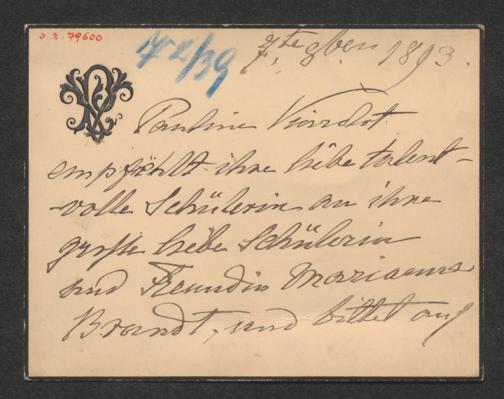 J. N. 79600
72/39
7te 8ber 1893.
Pauline Viardot
empfiehlt ihre liebe talent-
volle Schülerin an ihre
große liebe Schülerin
und Freundin Marianne
Brandt, und bittet auf